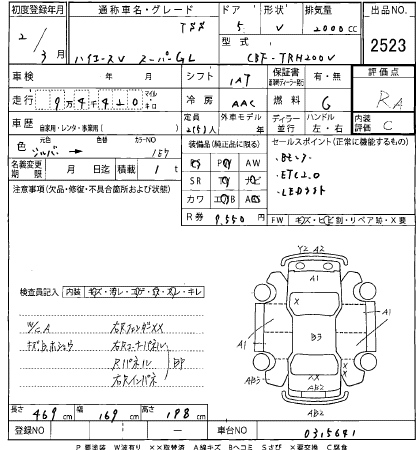 初度登録年月 通称車名・グレード ドア 形状 排気量 出品NO.
2/ 5 V 2000 CC 2523
3月 ハイエースV スーパーGL 型式 CBF-TRH200V
車検 シフト IAT 保証書 有・無 評価点
走行 9万4千420 マイル キロ 冷房 AAC 燃料 G RA
車歴 自家用・レンタ・事業用( ) 定員 2(5)人 外車モデル年 ディーラー 並行 ハンドル 左・右 内装評価 C
色 元色 シルバー → 色替 カラーNO 1E7 装備品(純正品に限る) セールスポイント(正常に機能するもの)
名義変更期限 月 日迄 積載 1 t PS PW AW
注意事項(欠品・修復・不具合箇所および状態) SR TV ナビ ・ETC2.0
カワ エアB ABS
R券 9,550 円 FW キズ・ヒビ割・リペア跡・X要
Y2 A2
A1
検査員記入 内装 キズ・汚レ・コゲ・穴・スレ・キレ
X
A1 B3 A1
右Rフェンダ XX
右Rコーナーパネル
Rパネル BP
右Rインパネ
AB3 XX A2
AB2
AB2
長さ 469 cm 幅 169 cm 高さ 198 cm
登録NO 車台NO 0315641
P 要塗装 W波有り ××取替済 A線キズ Bヘコミ Sさび ×要交換 C腐食